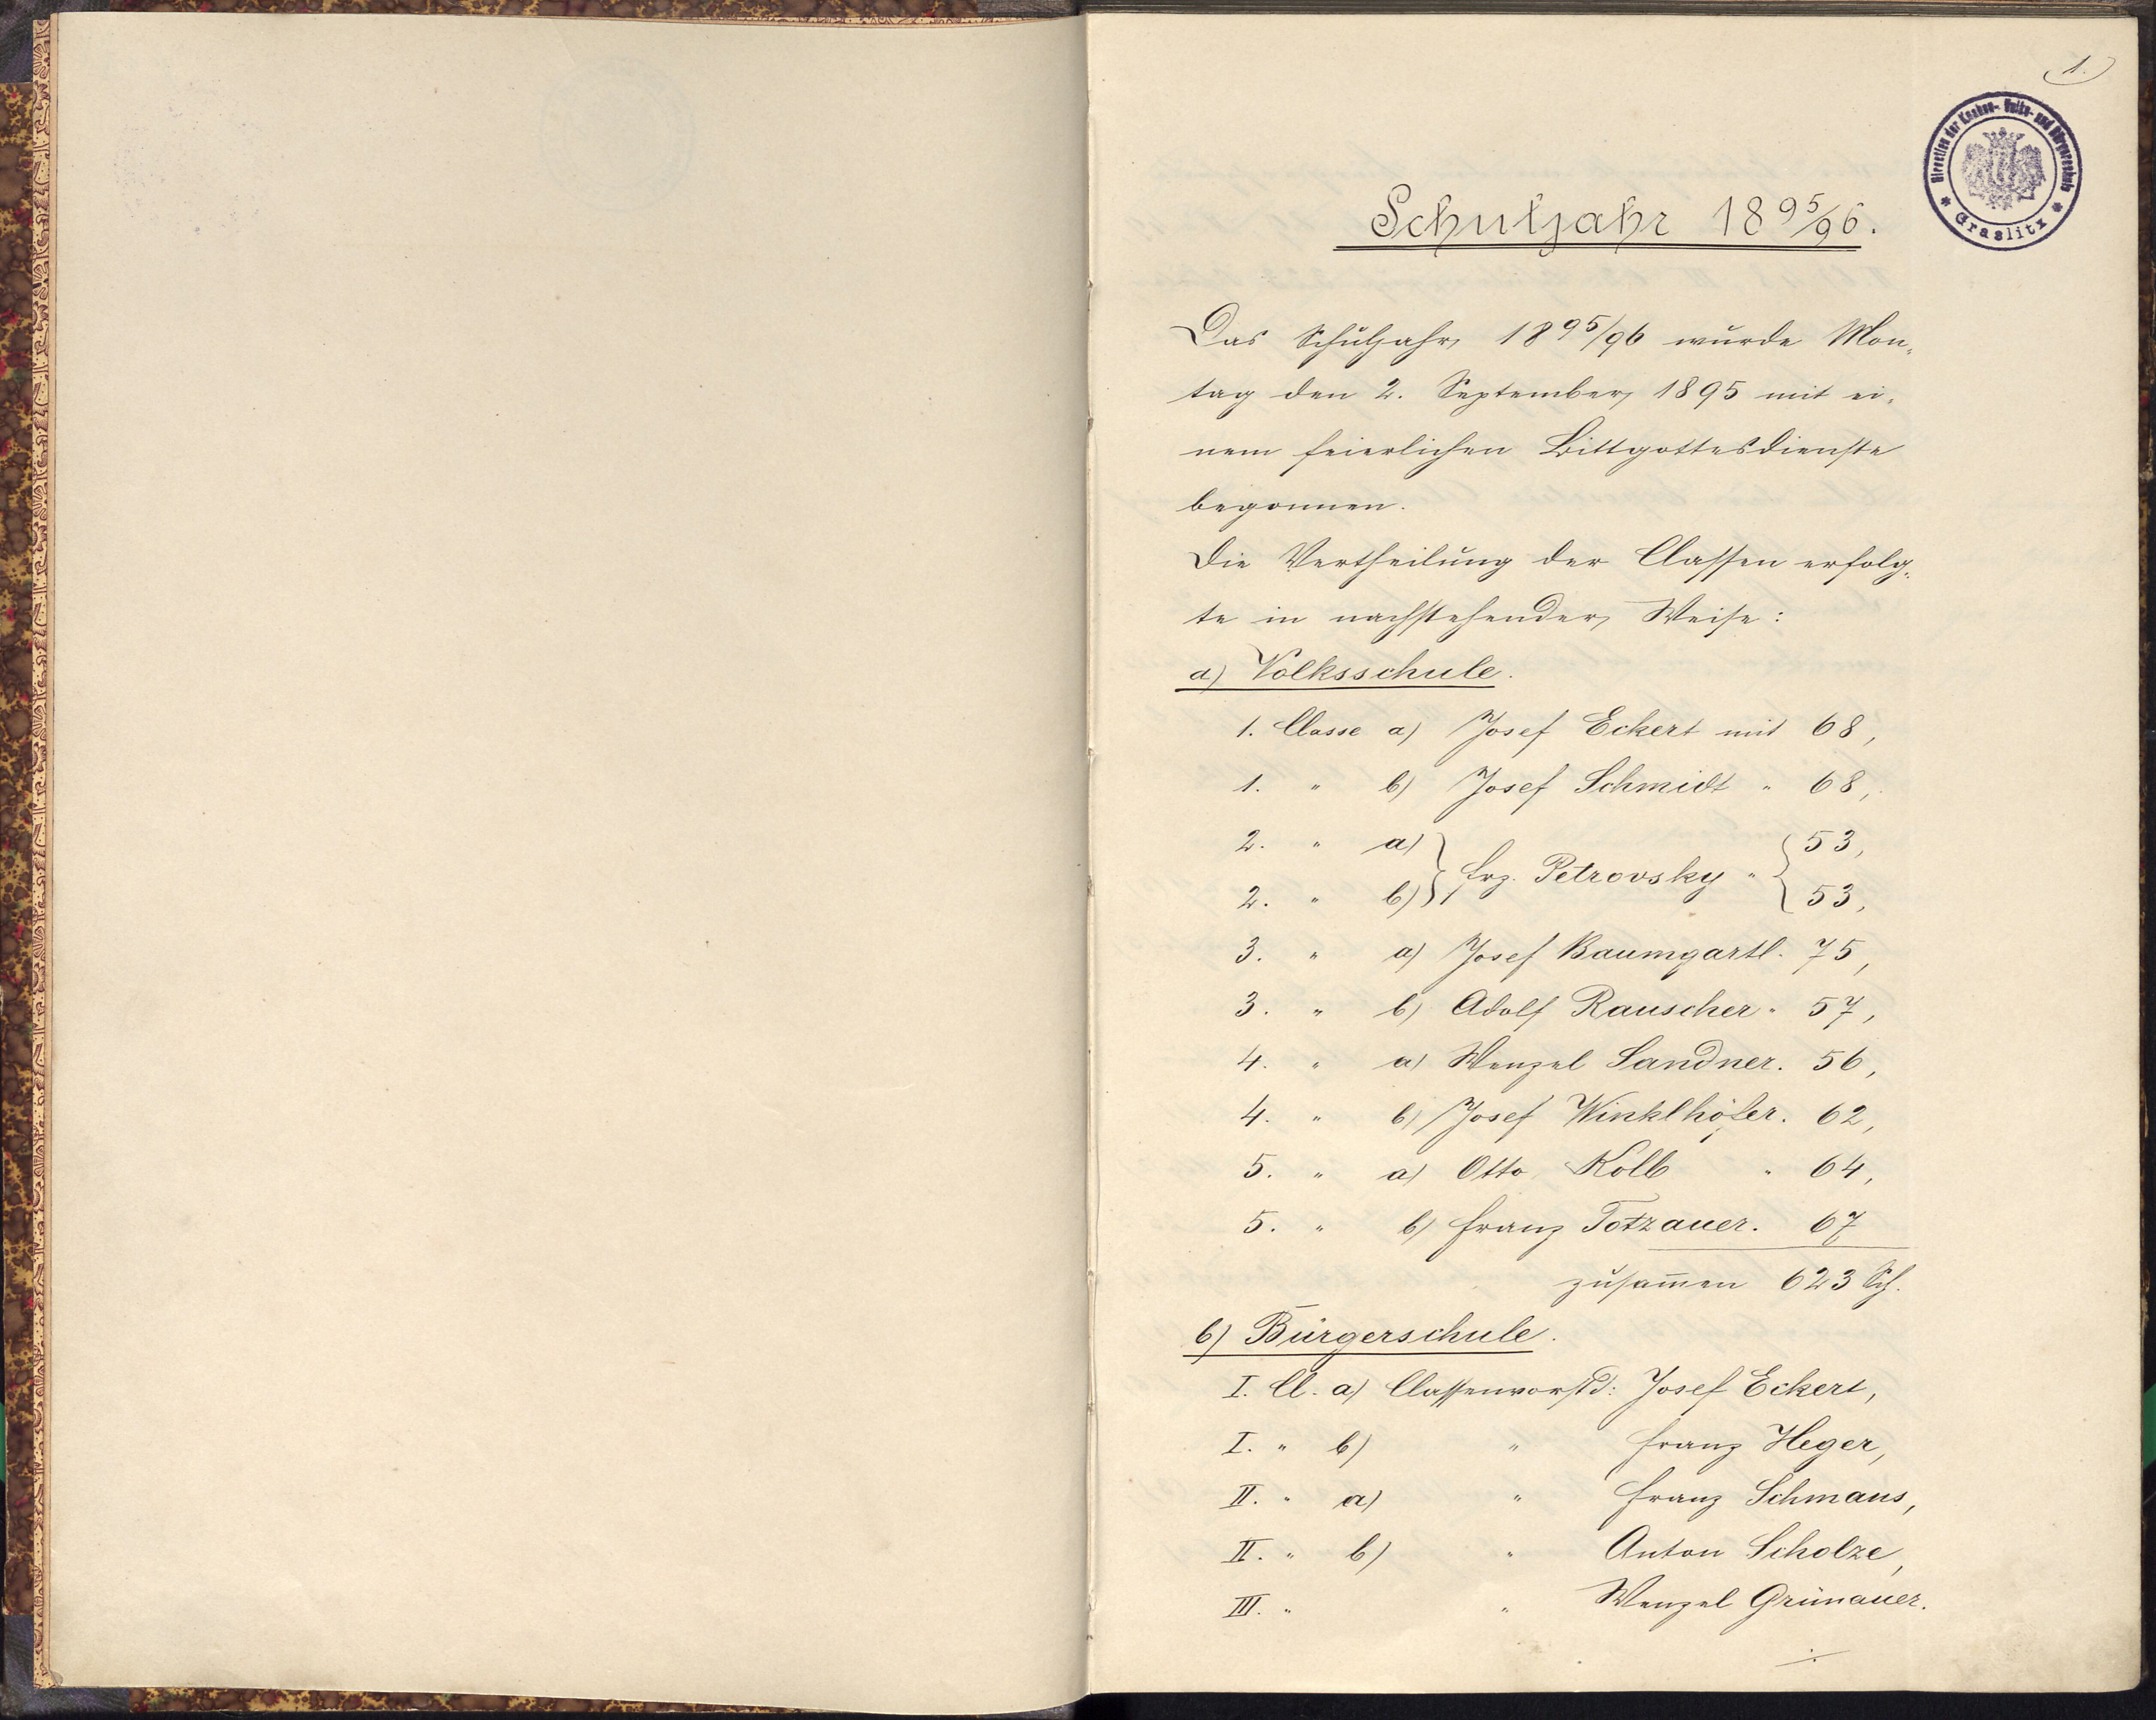 1.
Direction der Knaben- Volks- und Bürgerschule
* Graslitz *
Schuljahr 1895/96.
Das Schuljahr 1895/96 wurde Mon-
tag den 2. September 1895 mit ei-
nem feierlichen Bittgottesdienste
begonnen.
Die Vertheilung der Classen erfolg-
te in nachstehender Weise:
a) Volksschule.
1. Classe a) Josef Eckert mit 68,
1. " b) Josef Schmidt " 68,
2. " a) } Frz. Petrovsky " { 53,
2. " b) } { 53,
3. " a) Josef Baumgartl " 75,
3. " b) Adolf Rauscher " 57,
4. " a) Wenzel Sandner " 56,
4. " b) Josef Winklhöfer " 62,
5. " a) Otto Kolb " 64,
5. " b) Franz Totzauer " 67
zusam̄en 623 Sch.
b) Bürgerschule.
I. Cl. a) Classenvorstd: Josef Eckert,
I. " b) " Franz Heger,
II. " a) " Franz Schmaus,
II. " b) " Anton Scholze,
III. " " Wenzel Grünauer.
./.